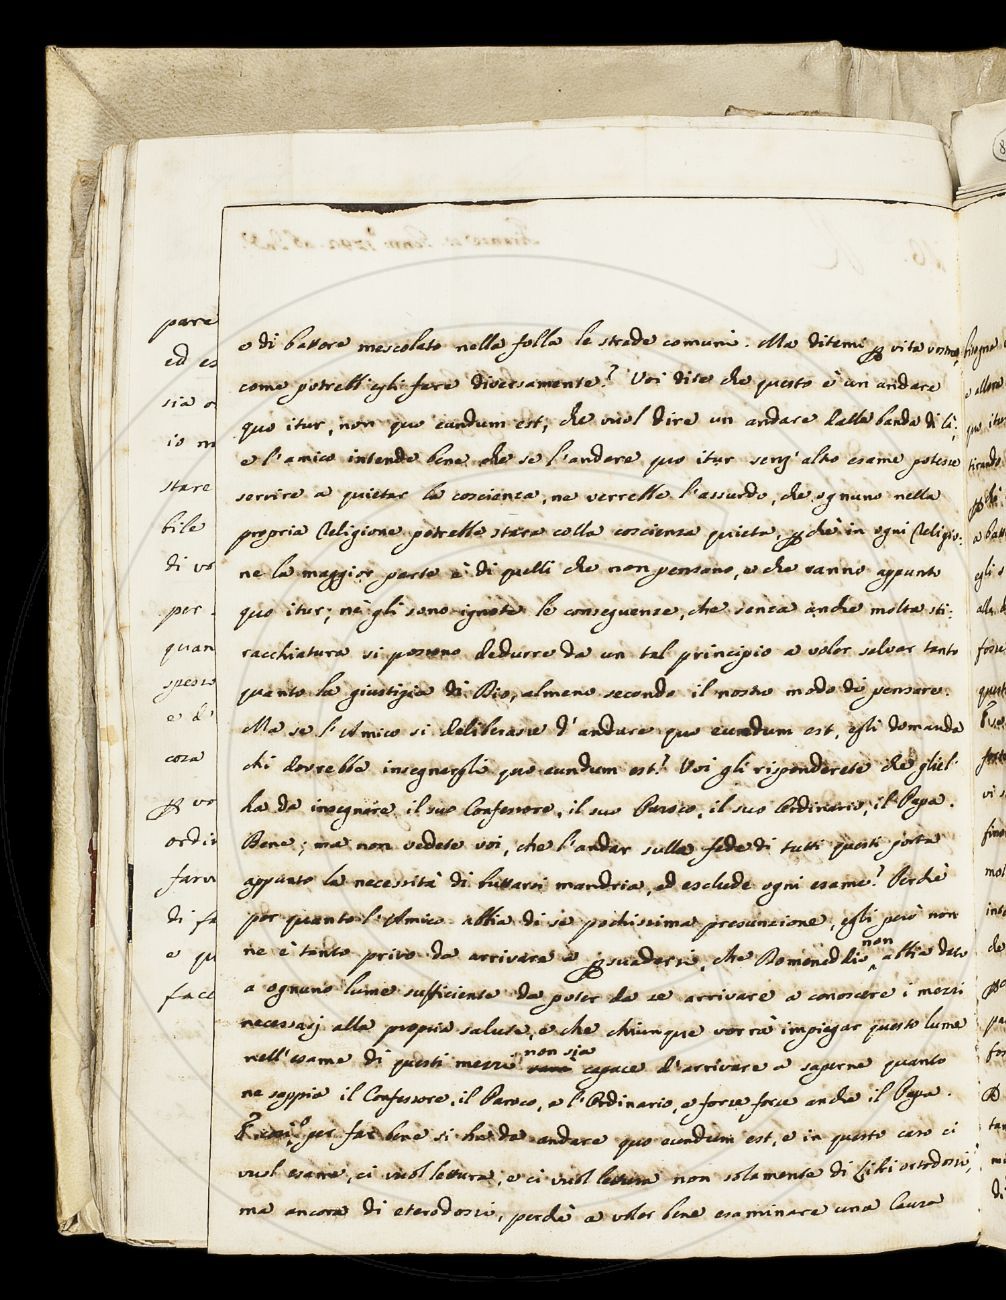 e di battere mescolato nella folla le strade comuni. Ma ditemi per vita vostra,
come potrebb'egli fare diversamente? Voi dite che questo è un andare
quo itur, non quo eundum est, che vuol dire un andare dalla banda di là;
e l'amico intende bene che se l'andare quo itur senz'altro esame potesse
servire a quietar la coscienza, ne verrebbe l'assurdo, che ognuno nella
propria Religione potrebbe stare colla coscienza quieta, perchè in ogni Religio-
ne la maggior parte è di quelli che non pensano, e che vanno appunto
quo itur; nè gli sono ignote le conseguenze, che senza anche molta sti-
racchiatura si possono dedurre da un tal principio a voler salvar tanto
quanto la giustizia di Dio, almeno secondo il nostro modo di pensare.
Ma se l'Amico si deliberasse d'andare quo eundum est, egli domanda
chi dovrebbe insegnergli quo eundum est? Voi gli risponderete che gliel'
ha da insegnare il suo Confessore, il suo Paroco, il suo Ordinario, il Papa.
Bene; ma non vedete voi, che l'andar sulla fede di tutti questi porta
appunto la necessità di buttarsi mandria, ed esclude ogni esame? Perchè
per quanto l'Amico abbia di se pochissima presunzione, egli però non
ne è tanto privo da arrivare a persuadersi, che Domeneddio non abbia dato
a ognuno lume sufficiente da poter da se arrivare a conoscere i mezzi
necessarj alla propria salute, e che chiunque vorrà impiegar questo lume
nell'esame di questi mezzi non sia capace d'arrivare a saperne quanto
ne sappia il Confessore, il Paroco, e l'Ordinario, e forse forse anche il Papa.
E così per far bene si ha da andare quo eundum est, e in questo caso ci
vuol esame, ci vuol lettura, e ci vuol lettura non solamente di Libri ortodossi,
ma ancora di eterodossi, perchè a voler bene esaminare una Causa
pare
ed es
sia
io
stare
bile
di vo
per
quan
spesso
e di
cosa
per vo
ordin
farvi
di fa
e
face